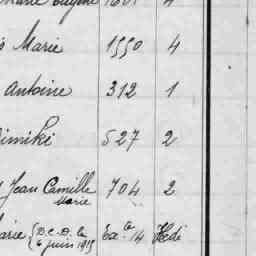 Marie Eugène 1601 4
Marie 1550 4
Antoine 312 1
Dimiki 527 2
Jean Camille Marie 704 2
Marie { D.C.D. le 6 juin 1915 Ex. 14